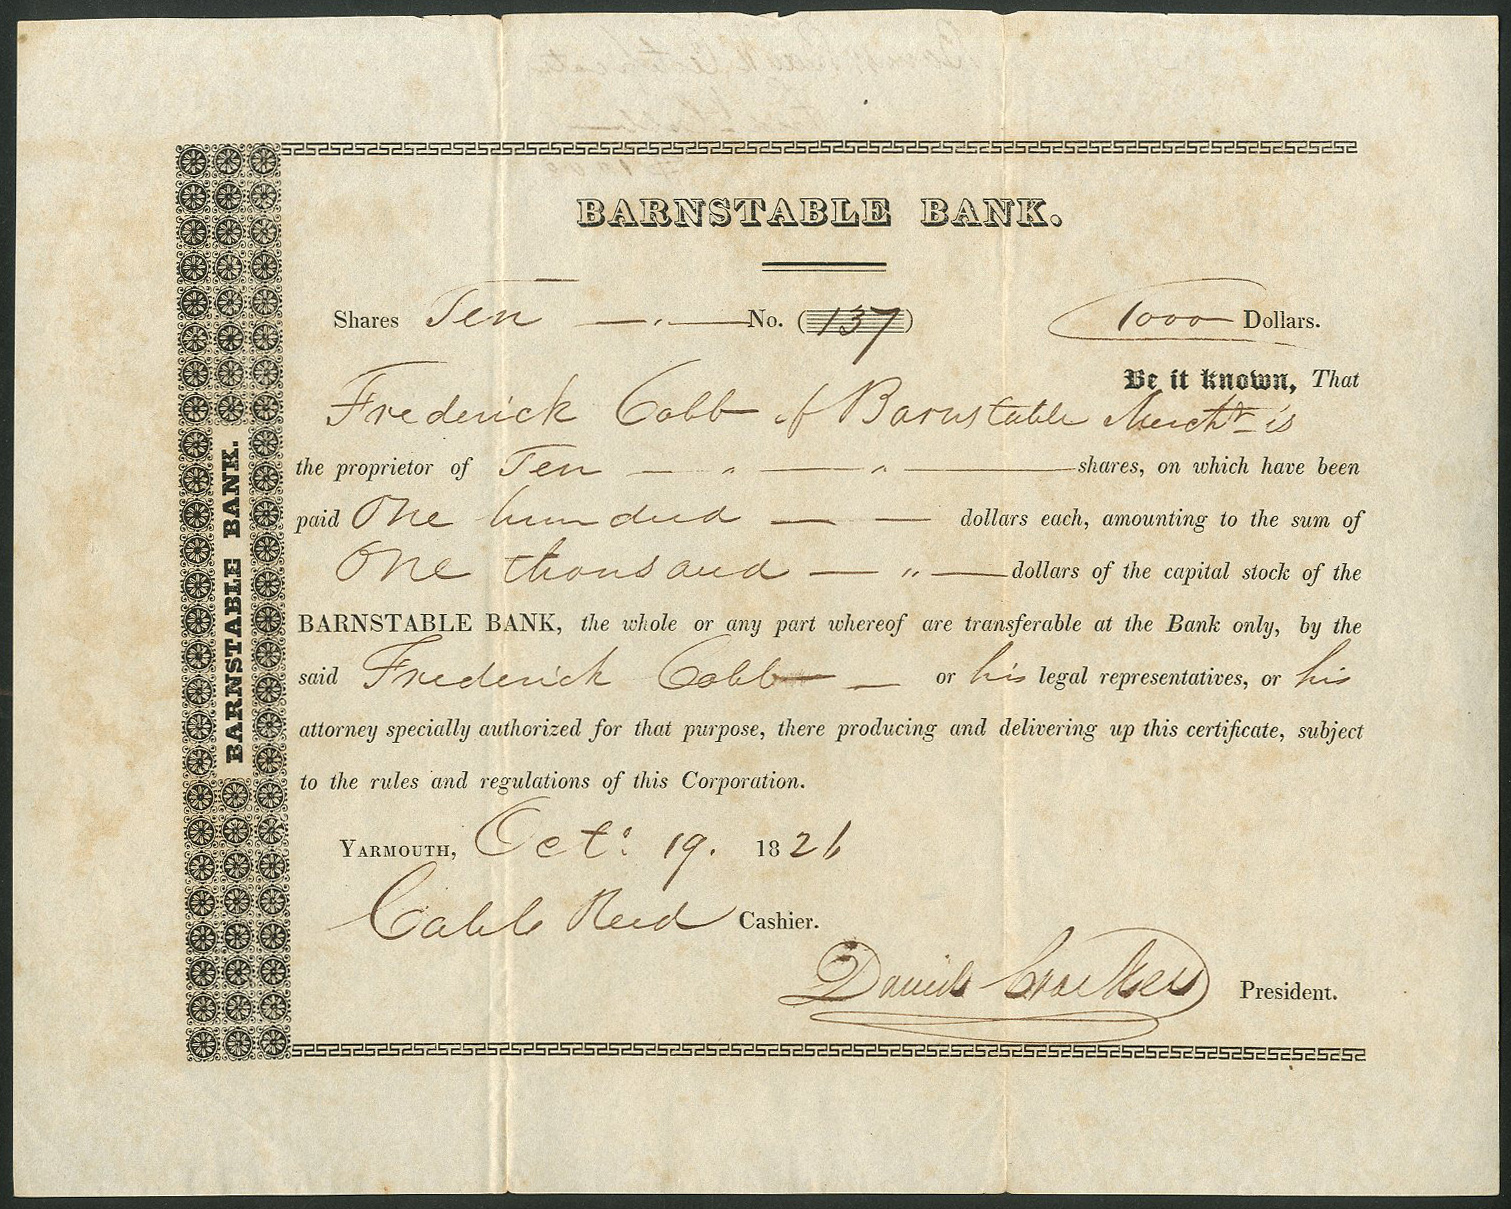 BARNSTABLE BANK.
Shares Ten No. (137) 1000 Dollars.
Be it known, That
Frederick Cobb of Barnstable Mercht is
the proprietor of Ten shares, on which have been
paid One hundred dollars each, amounting to the sum of
One thousand dollars of the capital stock of the
BARNSTABLE BANK, the whole or any part whereof are transferable at the Bank only, by the
said Frederick Cobb or his legal representatives, or his
attorney specially authorized for that purpose, there producing and delivering up this certificate, subject
to the rules and regulations of this Corporation.
YARMOUTH, Oct. 19. 1826
Caleb Reed Cashier.
David Crocker President.
BARNSTABLE BANK.